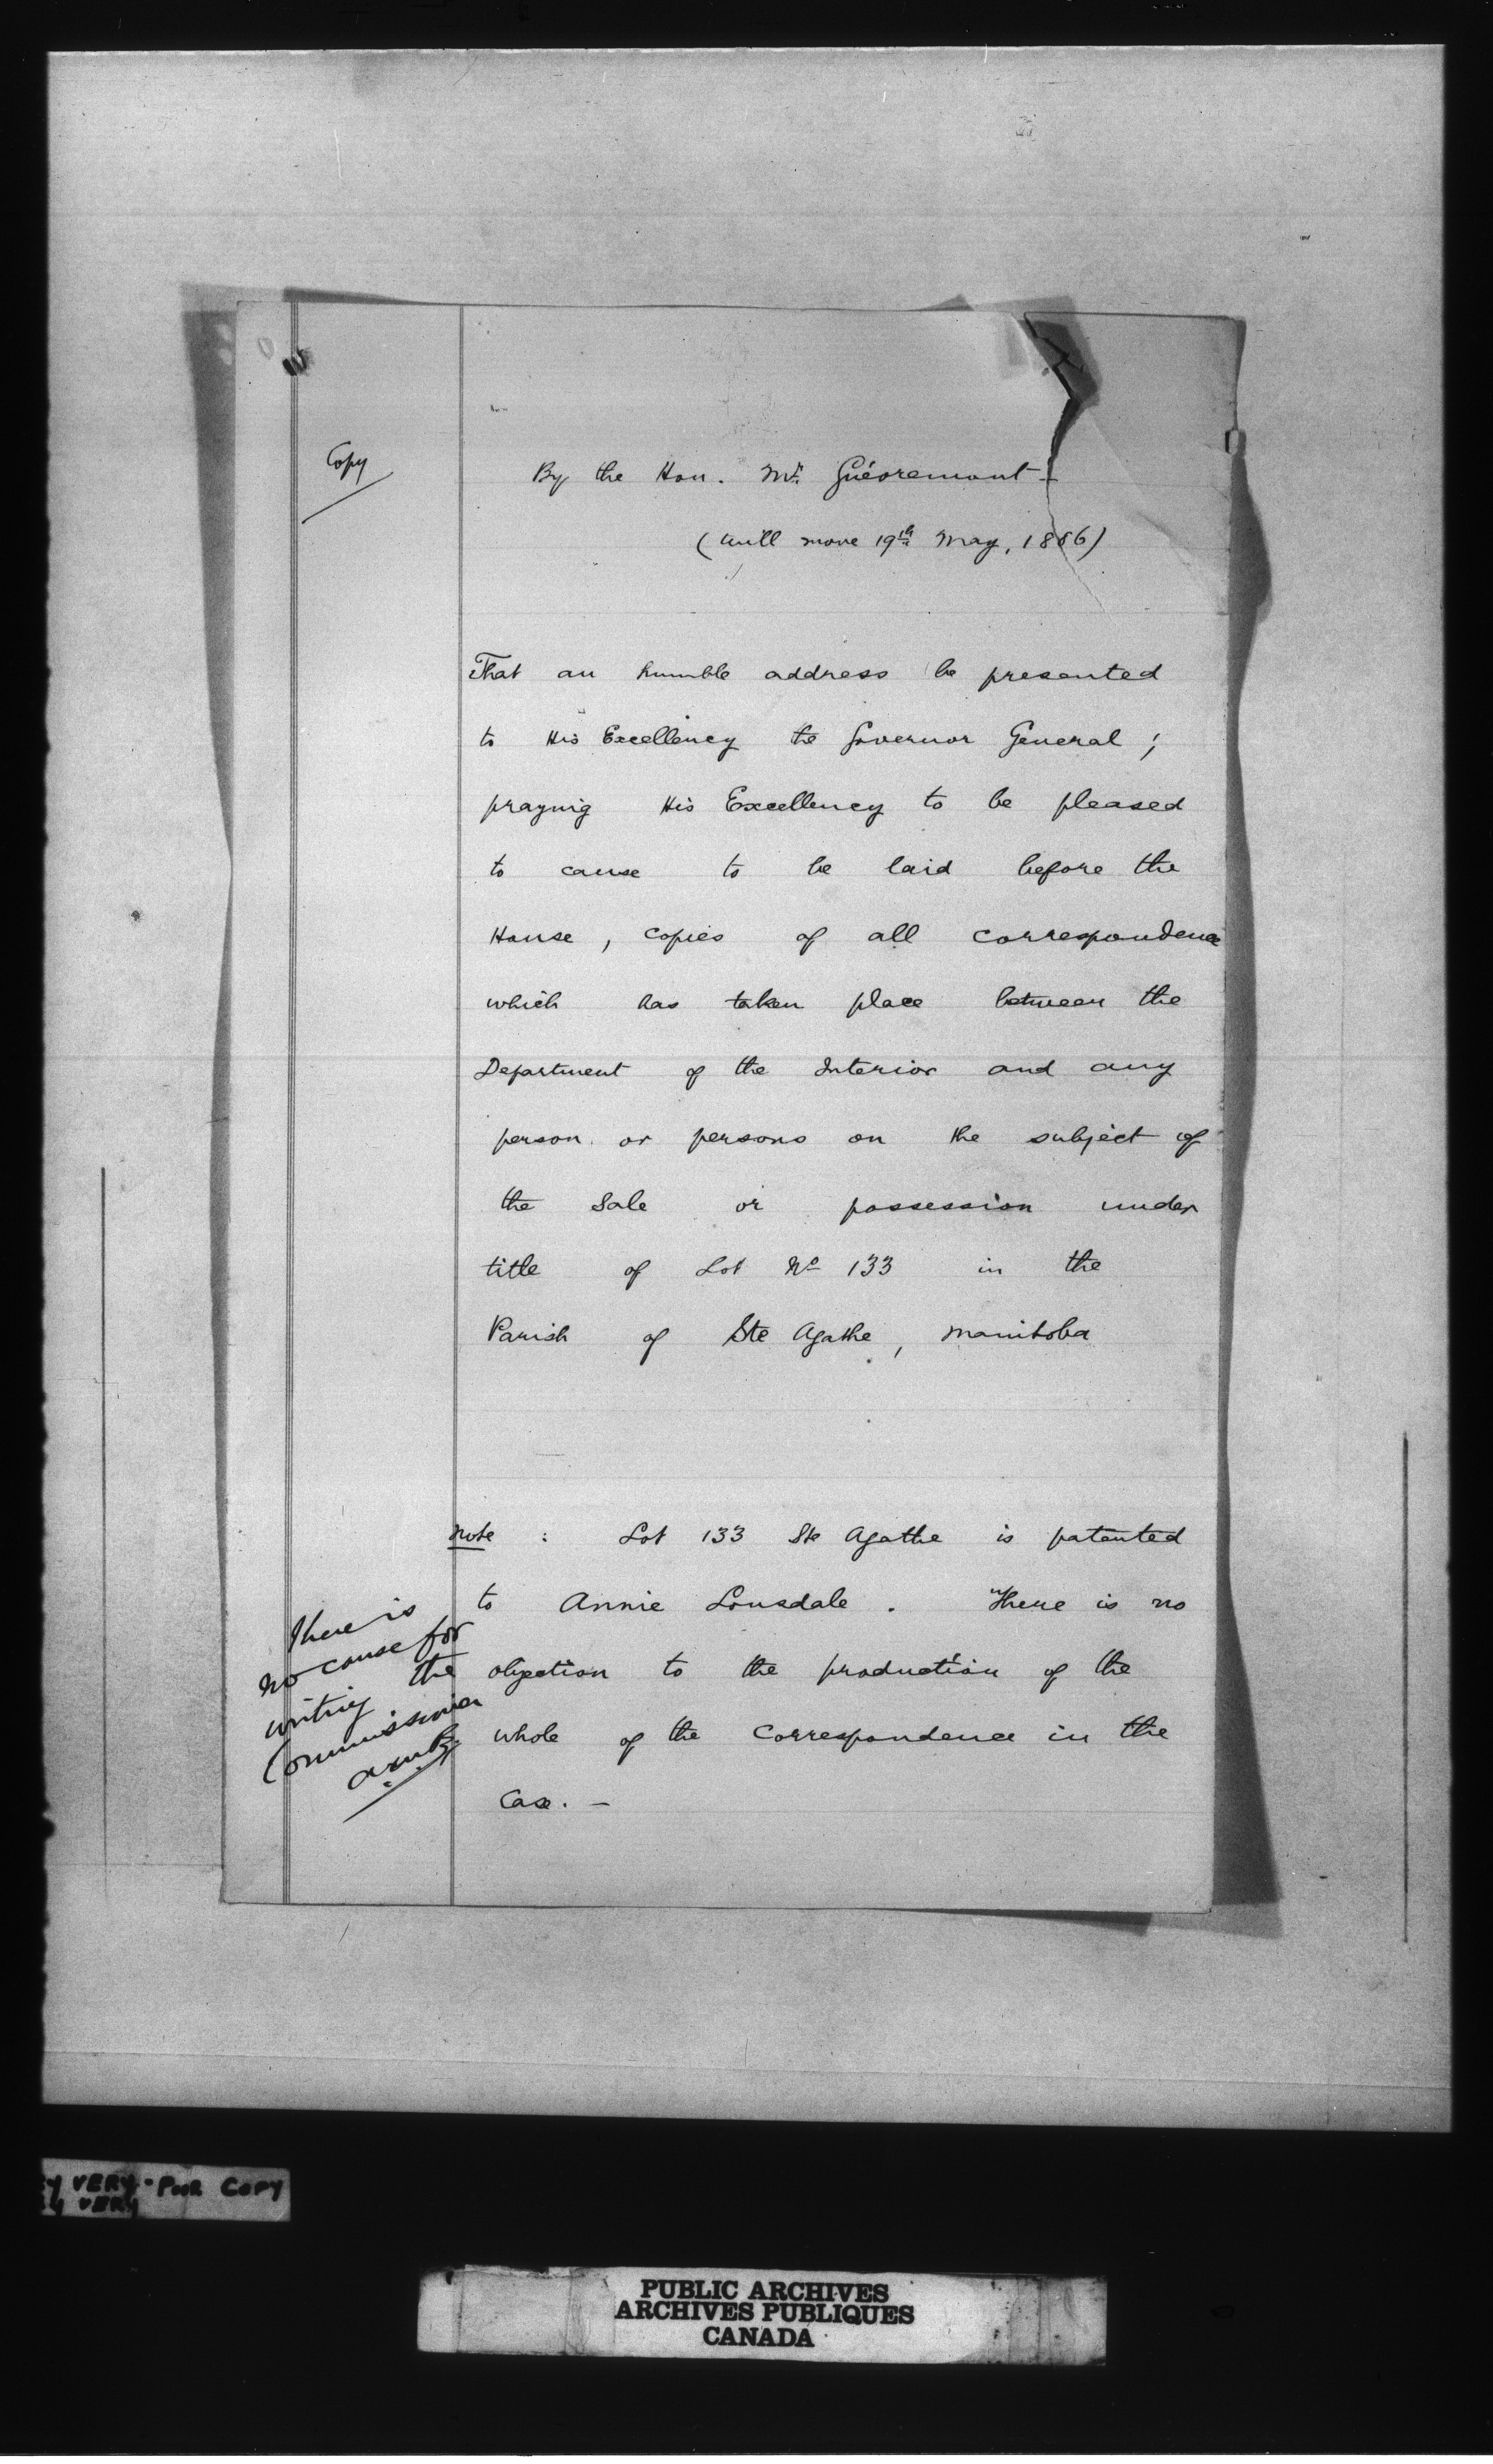 Copy
By the Hon. Mr. Guévremont -
(will move 19th May, 1886)
That an humble address be presented
to His Excellency the Governor General ;
praying His Excellency to be pleased
to cause to be laid before the
House , copies of all correspondence
which has taken place between the
Department of the Interior and any
person or persons on the subject of
the Sale or possession under
title of Lot No 133 in the
Parish of Ste Agathe , Manitoba
Note : Lot 133 Ste Agathe is patented
to Annie Lonsdale . There is no
objection to the production of the
whole of the Correspondence in the
Case. -
There is
no cause for
writing the
Commissioner
VERY - POOR COPY
VERY
PUBLIC ARCHIVES
ARCHIVES PUBLIQUES
CANADA